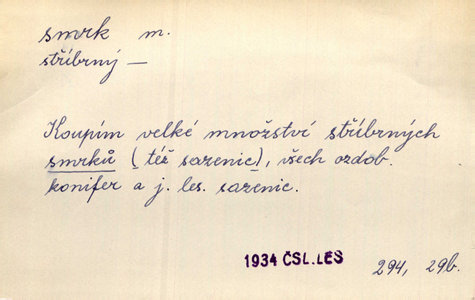 smrk m.
stříbrný —
Koupím velké množství stříbrných
smrků (též sazenic), všech ozdob.
konifer a j. les. sazenic.
1934 ČSL.LES 294, 29b.